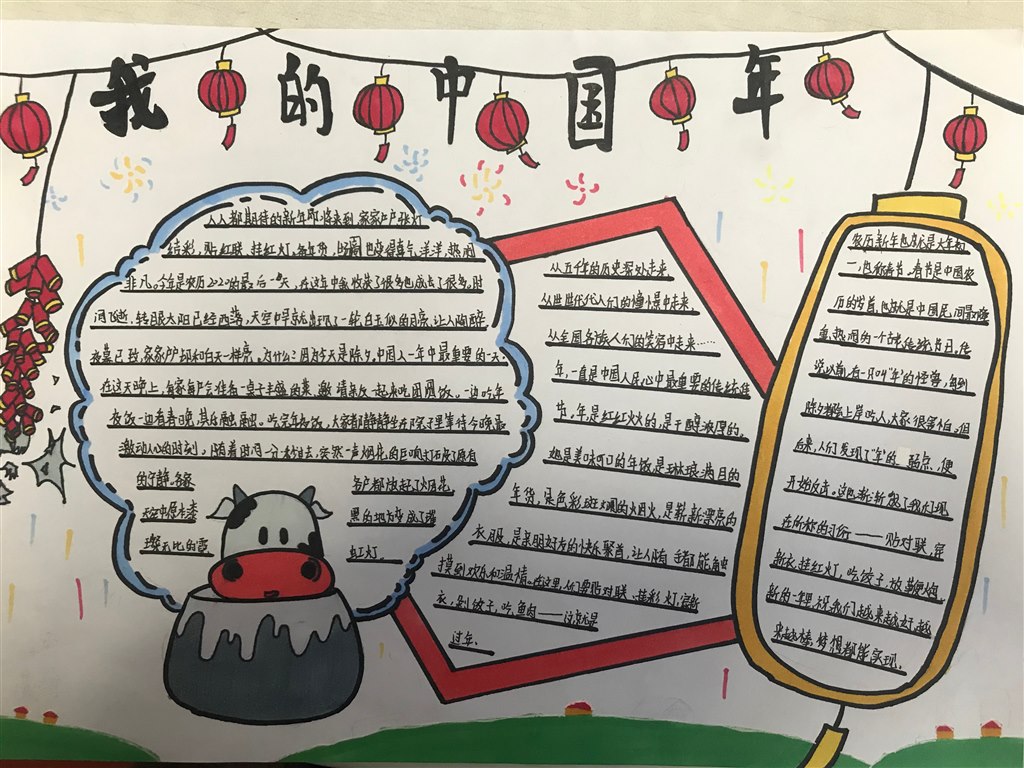 我的中国年
人人都期待的新年即将来到,家家户户张灯
结彩,贴红联,挂红灯,每年历,也变得喜气洋洋,热闹
非凡。今年是农历2020的最后一天,在这年中我收获了很多也成去了很多。时
间飞逝,转眼太阳已经西落,天空中早就出现了一轮白玉似的月亮,让人陶醉
夜幕已致,家家户户却和白天一样亮,为什么?因为今天是除夕,中国人一年中最重要的一天。
在这天晚上,每家每户会准备一桌子丰盛的菜,邀请亲友一起来吃团圆饭。一边吃年
夜饭一边看春晚,其乐融融。吃完年夜饭,大家都静静坐在院子里等待今晚最
激动人心的时刻,随着时间一分一秒过去,突然一声烟花的巨响打破了原有
的宁静。各家
各户都放起了烟花
天空中原本漆
黑的地方变成了璀
璨无比的霓
虹灯。
从五千年的历史深处走来
从世世代代人们的憧憬中走来
从全国各族人们的笑容中走来……
年,一直是中国人民心中最重要的传统佳
节,年是红红火火的,是干醇浓厚的。
她是美味可口的年饭是琳琅满目的
年货,是色彩斑斓的烟火,是崭新漂亮的
衣服,是亲朋好友的快乐聚首,让人随手都能触
摸到欢乐和温情。在这里,人们要贴对联,挂彩灯,穿新
衣,剁饺子,吃鱼肉——这就是
过年.
农历新年也就是大年初
一,也称春节。春节是中国农
历的岁首,也就是中国民间最隆
重、热闹的一个古老传统节日。传
说以前,有一只叫"年"的怪兽,每到
除夕都会上岸吃人,大家很害怕。但
后来,人们发现了"年"的弱点,便
开始反击。这也渐渐就成了我们现
在所称的习俗——贴对联,穿
新衣,挂红灯,吃饺子,放鞭炮。
新的一年里,祝我们越来越好,越
来越棒,梦想都能实现。